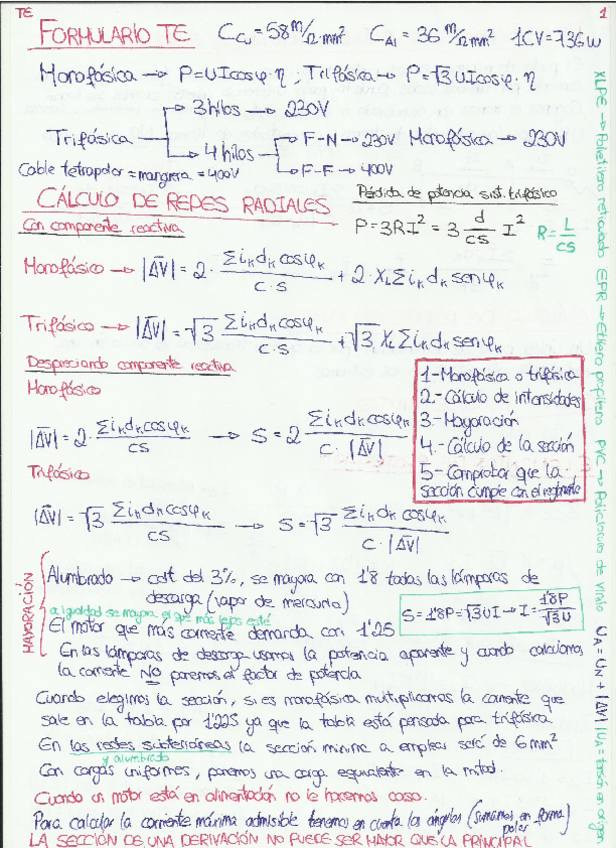 TE
1
FORMULARIO TE C_Cu = 58 m/Ω·mm² C_Al = 36 m/Ω·mm² 1CV = 736 W
Monofásica → P = UI cosφ · η ; Trifásica → P = √3 UI cosφ · η
Trifásica → 3 hilos → 230V
→ 4 hilos → F-N → 230V Monofásica → 230V
→ F-F → 400V
Cable tetrapolar = manguera = 400V
CÁLCULO DE REDES RADIALES
Pérdida de potencia sist. trifásico
Con componente reactiva
P = 3RI² = 3 d/cs I² R = L/cs
Monofásico → |ΔV| = 2 · Σi_k d_k cosφ_k / c·s + 2 · X_L Σi_k d_k senφ_k
Trifásico → |ΔV| = √3 Σi_k d_k cosφ_k / c·s + √3 X_L Σi_k d_k senφ_k
Despreciando componente reactiva
Monofásico
|ΔV| = 2 · Σi_k d_k cosφ_k / cs → S = 2 Σi_k d_k cosφ_k / c · |ΔV|
Trifásico
|ΔV| = √3 Σi_k d_k cosφ_k / cs → S = √3 Σi_k d_k cosφ_k / c · |ΔV|
1- Monofásica o trifásica
2.- Cálculo de intensidades
3.- Mayoración
4.- Cálculo de la sección
5- Comprobar que la
sección cumple con el reglamento
MAYORACIÓN
Alumbrado → cdt del 3%, se mayora con 1'8 todas las lámparas de
descarga (vapor de mercurio)
a igualdad se mayora el que más lejos esté
S = 1'8P = √3 UI → I = 1'8P / √3 U
El motor que más corriente demanda con 1'25
En las lámparas de descarga usamos la potencia aparente y cuando calculamos
la corriente NO ponemos el factor de potencia
Cuando elegimos la sección, si es monofásica multiplicamos la corriente que
sale en la tabla por 1'225 ya que la tabla está pensada para trifásica
En las redes subterráneas la sección mínima a emplear será de 6 mm²
y alumbrado
Con cargas uniformes, ponemos una carga equivalente en la mitad.
Cuando un motor está en alimentación no le hacemos caso.
Para calcular la corriente máxima admisible tenemos en cuenta los ángulos (sumamos en forma)
polar
LA SECCIÓN DE UNA DERIVACIÓN NO PUEDE SER MAYOR QUE LA PRINCIPAL
XLPE → Polietileno reticulado EPR → Etileno propileno PVC → Policloruro de vinilo U_A = U_N + |ΔV| U_A = tensión en origen